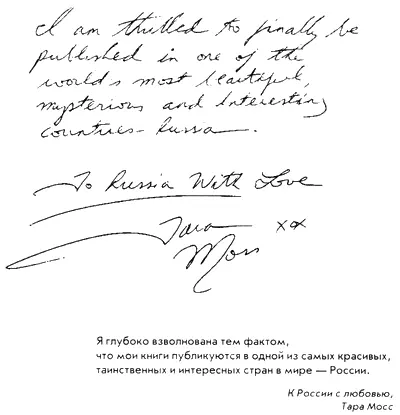 I am thrilled to finally be
published in one of the
world's most beautiful,
mysterious and interesting
countries - Russia.
To Russia With Love
Tara xox
Moss
Я глубоко взволнована тем фактом,
что мои книги публикуются в одной из самых красивых,
таинственных и интересных стран в мире — России.
К России с любовью,
Тара Мосс